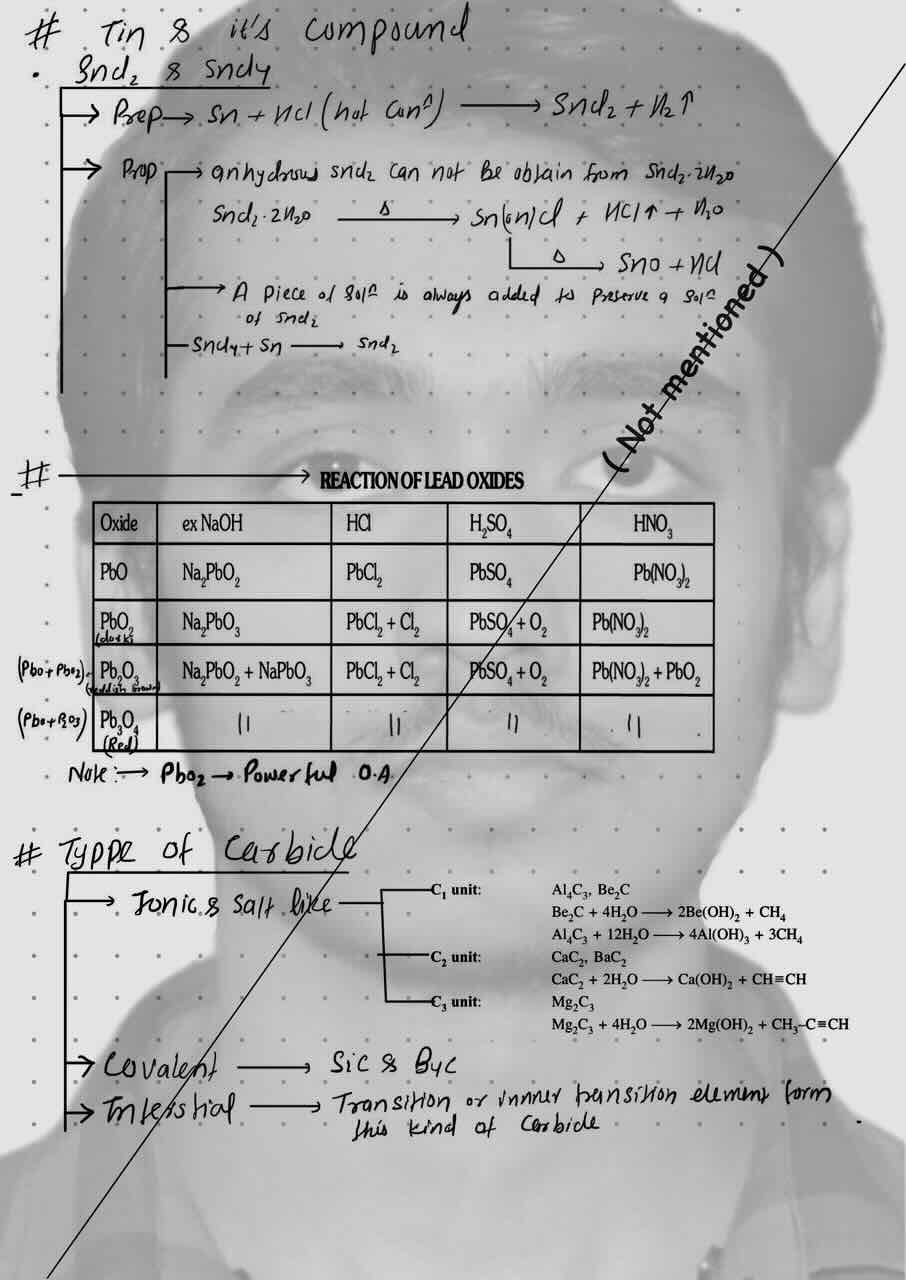 # Tin & it's compound
• SnCl₂ & SnCl₄
→ Prep → Sn + HCl (hot conⁿ) → SnCl₂ + H₂↑
→ Prop → anhydrous SnCl₂ can not be obtain from SnCl₂·2H₂O
SnCl₂·2H₂O —Δ→ Sn(OH)Cl + HCl↑ + H₂O
—Δ→ SnO + HCl
→ A piece of solⁿ is always added to preserve a solⁿ
of SnCl₂
SnCl₄ + Sn → SnCl₂
(Not mentioned)
# → REACTION OF LEAD OXIDES
Oxide ex NaOH HCl H₂SO₄ HNO₃
PbO Na₂PbO₂ PbCl₂ PbSO₄ Pb(NO₃)₂
PbO₂ Na₂PbO₃ PbCl₂ + Cl₂ PbSO₄ + O₂ Pb(NO₃)₂
(PbO + PbO₂) Pb₂O₃ Na₂PbO₂ + NaPbO₃ PbCl₂ + Cl₂ PbSO₄ + O₂ Pb(NO₃)₂ + PbO₂
(reddish brown)
Pb₃O₄ || || || ||
(Red)
Note :→ PbO₂ → Powerful O.A
# Typpe of Carbide
→ Ionic & Salt like
C₁ unit: Al₄C₃, Be₂C
Be₂C + 4H₂O → 2Be(OH)₂ + CH₄
Al₄C₃ + 12H₂O → 4Al(OH)₃ + 3CH₄
C₂ unit: CaC₂, BaC₂
CaC₂ + 2H₂O → Ca(OH)₂ + CH≡CH
C₃ unit: Mg₂C₃
Mg₂C₃ + 4H₂O → 2Mg(OH)₂ + CH₃–C≡CH
→ Covalent → SiC & B₄C
→ Interstial → Transition or inner transition element form
this kind of Carbide